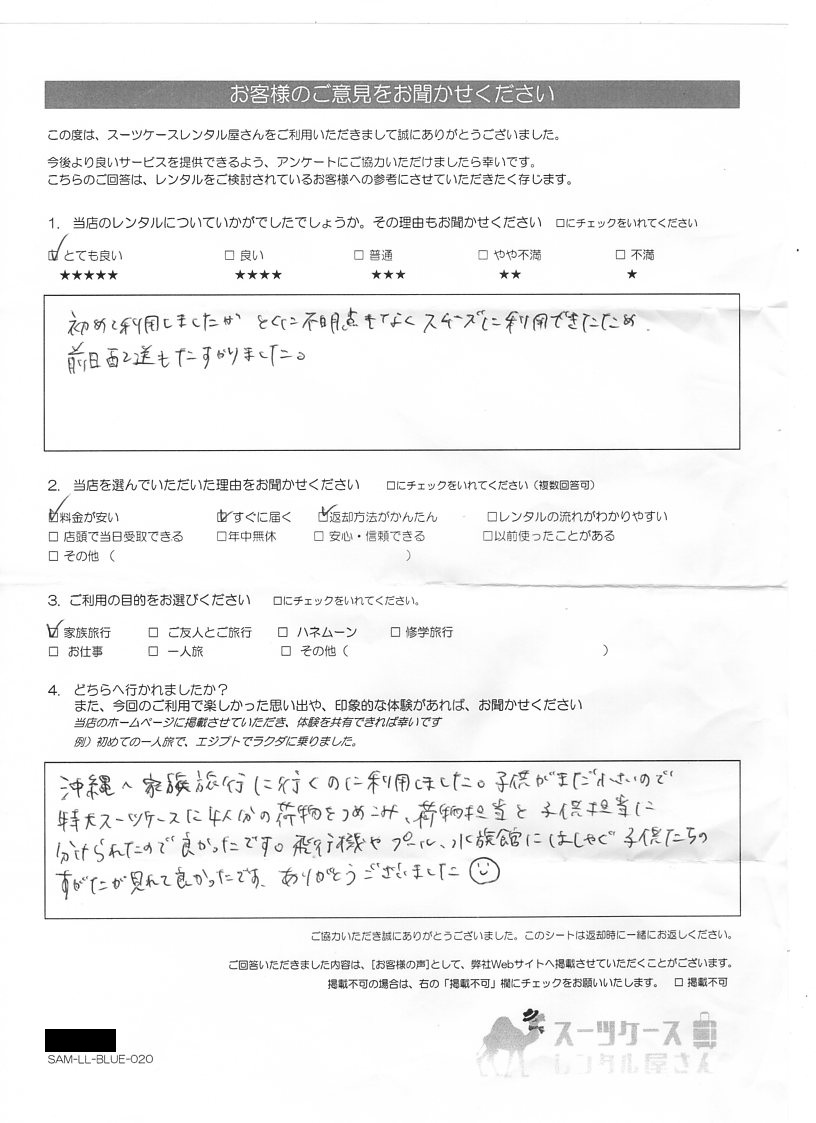 お客様のご意見をお聞かせください
この度は、スーツケースレンタル屋さんをご利用いただきまして誠にありがとうございました。
今後より良いサービスを提供できるよう、アンケートにご協力いただけましたら幸いです。
こちらのご回答は、レンタルをご検討されているお客様への参考にさせていただきたく存じます。
1. 当店のレンタルについていかがでしたでしょうか。その理由もお聞かせください □にチェックをいれてください
☑ とても良い □ 良い □ 普通 □ やや不満 □ 不満
★★★★★ ★★★★ ★★★ ★★ ★
初めて利用しましたが とくに不明点もなくスムーズに利用できたため.
前日配送もたすかりました。
2. 当店を選んでいただいた理由をお聞かせください □にチェックをいれてください（複数回答可）
☑料金が安い ☑すぐに届く ☑返却方法がかんたん □レンタルの流れがわかりやすい
□ 店頭で当日受取できる □年中無休 □ 安心・信頼できる □以前使ったことがある
□ その他（ ）
3. ご利用の目的をお選びください □にチェックをいれてください。
☑ 家族旅行 □ ご友人とご旅行 □ ハネムーン □ 修学旅行
□ お仕事 □ 一人旅 □ その他（ ）
4. どちらへ行かれましたか？
また、今回のご利用で楽しかった思い出や、印象的な体験があれば、お聞かせください
当店のホームページに掲載させていただき、体験を共有できれば幸いです
例）初めての一人旅で、エジプトでラクダに乗りました。
沖縄へ家族旅行に行くのに利用しました。子供がまだ小さいので
特大スーツケースに4人分の荷物をつめこみ、荷物担当と子供担当に
分けられたので良かったです。飛行機やプール、水族館にはしゃぐ子供たちの
すがたが見れて良かったです。ありがとうございました
ご協力いただき誠にありがとうございました。このシートは返却時に一緒にお返しください。
ご回答いただきました内容は、[お客様の声]として、弊社Webサイトへ掲載させていただくことがございます。
掲載不可の場合は、右の「掲載不可」欄にチェックをお願いいたします。 □ 掲載不可
スーツケース
レンタル屋さん
SAM-LL-BLUE-020